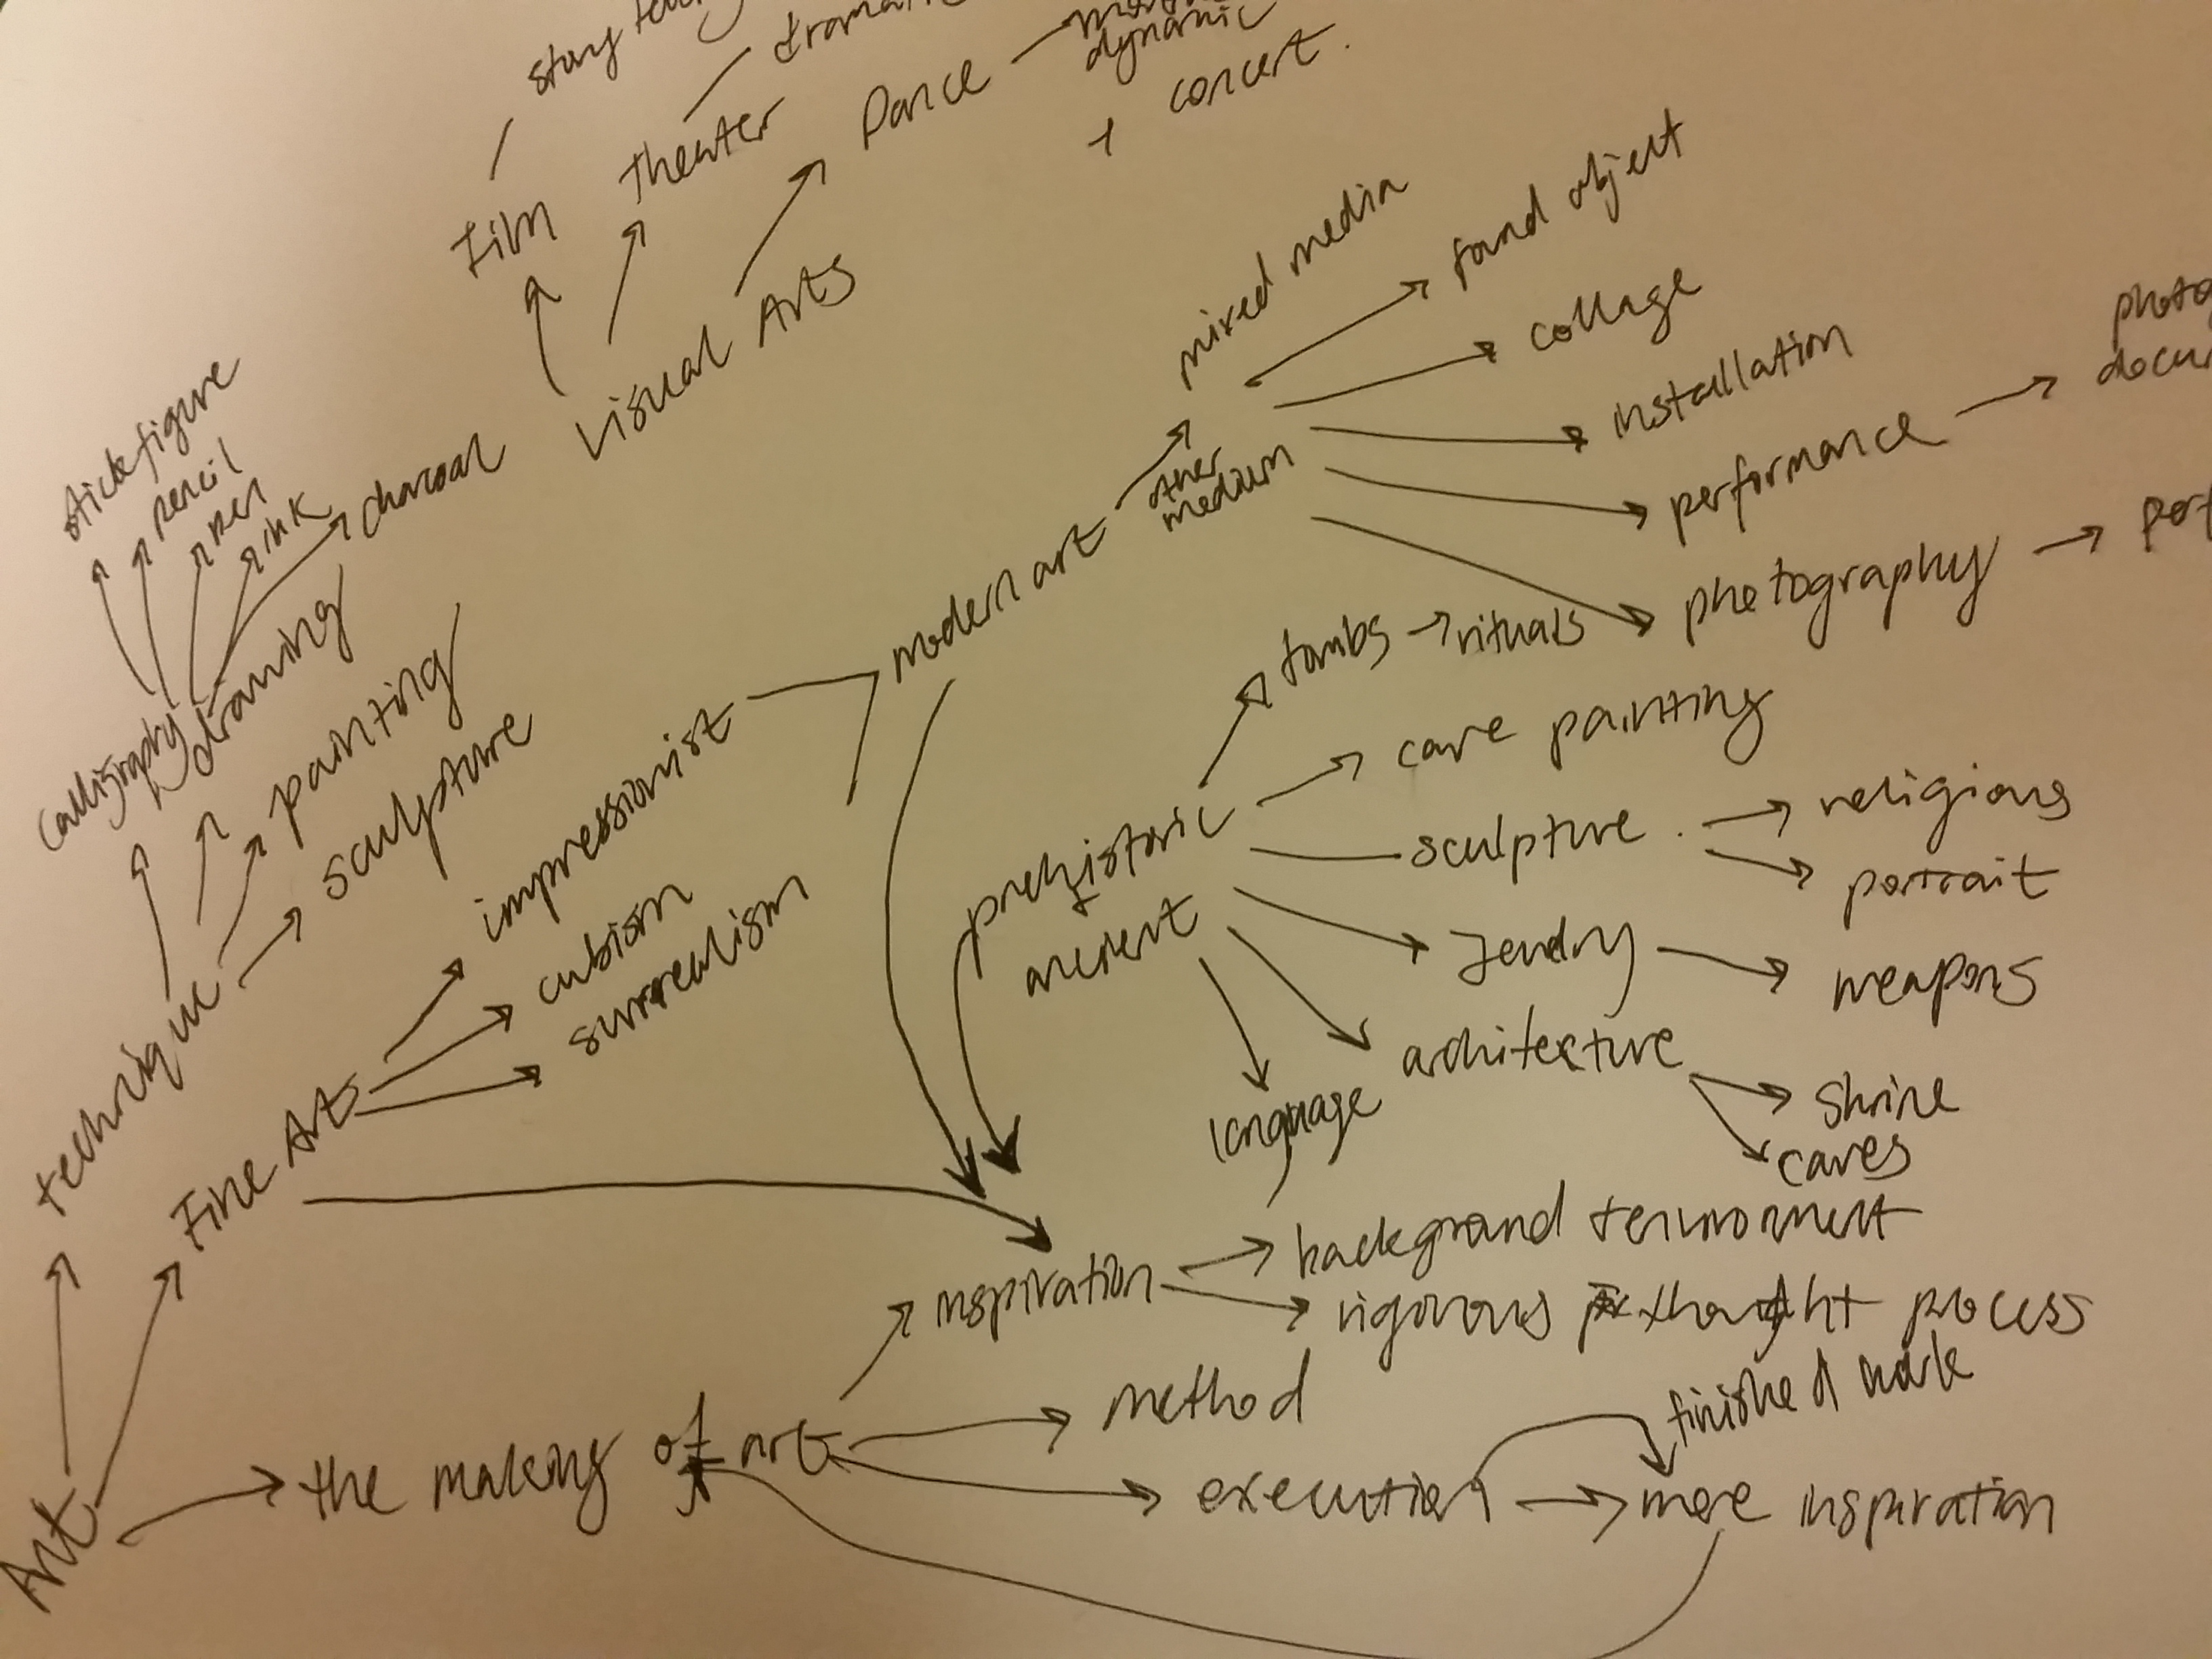 Film
theater
Dance
dynamic
+ concert.
Visual Arts
stick figure
pencil
pen
ink
charcoal
calligraphy
drawing
painting
sculpture
technique
Fine Arts
impressionist
cubism
surrealism
modern art
other
medium
mixed media
found object
collage
installation
performance
photography
prehistoric
ancient
tombs
rituals
cave painting
sculpture
religious
portrait
weapons
architecture
shrine
caves
language
inspiration
background + environment
rigorous thought process
Art
the making of art
method
execution
finished work
more inspiration